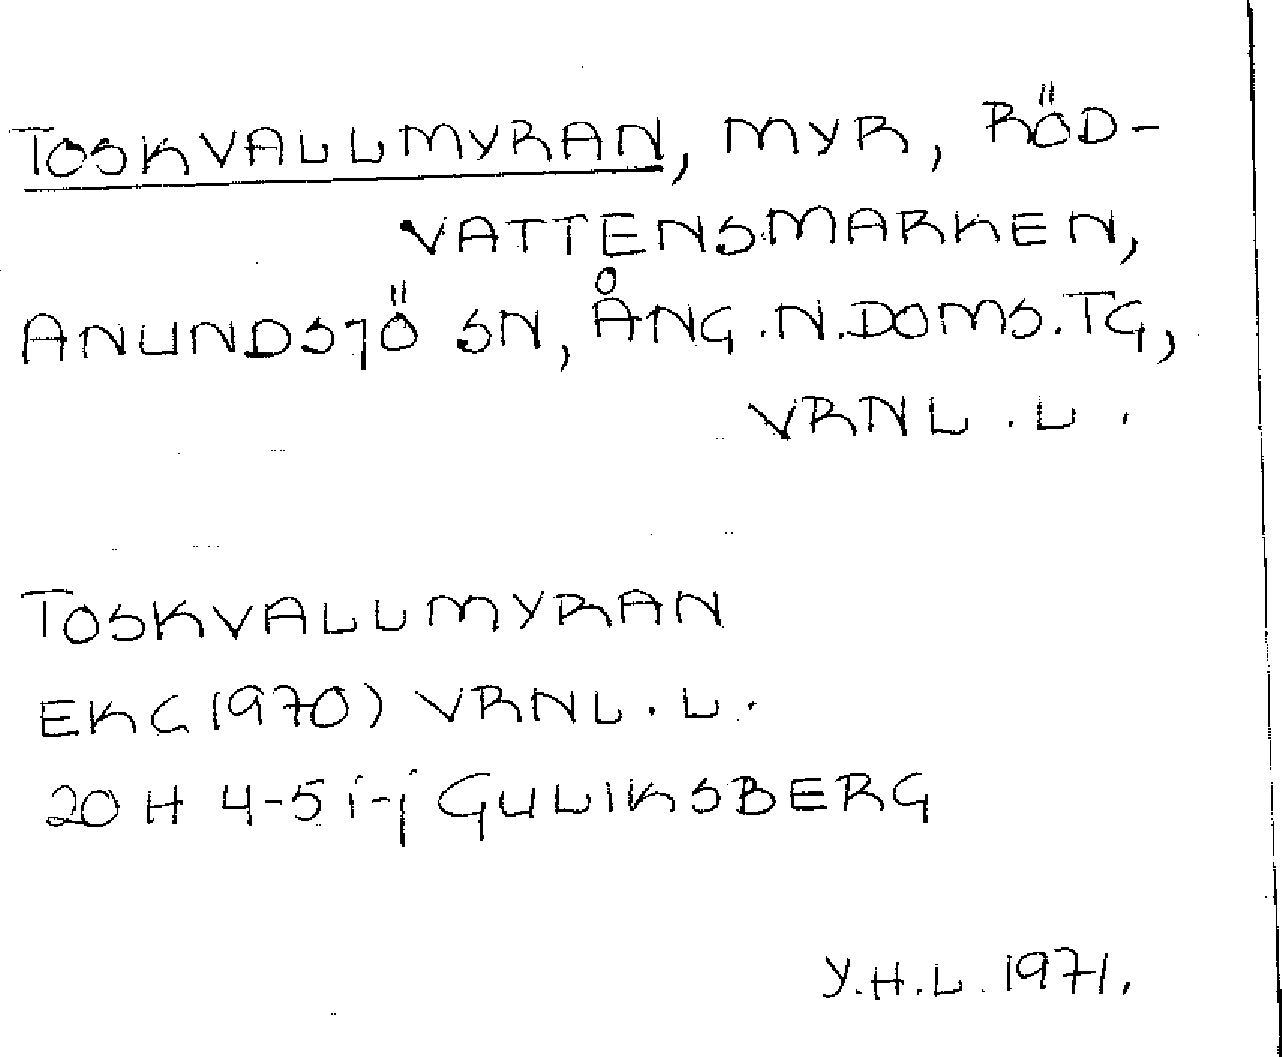 TOSKVALLMYRAN, MYR, RÖD-
VATTENSMARKEN,
ANUNDSJÖ SN, ÅNG.N.DOMS.TG,
VRNL.L.
TOSKVALLMYRAN
EKG(1970) VRNL.L.
20 H 4-5 i-j GULIKSBERG
Y.H.L. 1971.